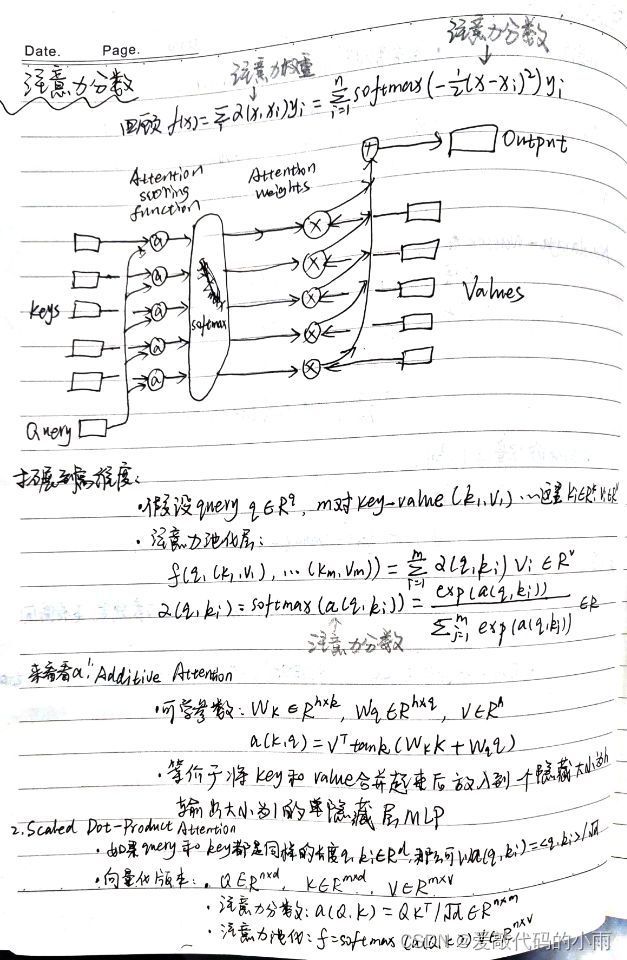 Date. Page.
注意力分数
注意力权重 注意力分数
回顾 f(x) = Σᵢ α(x, xᵢ)yᵢ = Σⁿᵢ₌₁ softmax(-½(x-xᵢ)²) yᵢ
Output
Attention scoring function
Attention weights
a
a
a
a
a
softmax
keys
Values
Query
拓展到高维度:
·假设query q∈R^q, m对key-value (k₁,v₁) … 这里 kᵢ∈R^k, vᵢ∈R^v
·注意力池化层:
f(q,(k₁,v₁), …(kₘ,vₘ)) = Σᵐᵢ₌₁ α(q,kᵢ) vᵢ ∈ R^v
α(q,kᵢ) = softmax(a(q,kᵢ)) = exp(a(q,kᵢ)) / Σᵐⱼ₌₁ exp(a(q,kⱼ)) ∈R
注意力分数
来看看a: 1. Additive Attention
·可学参数: W_k ∈ R^{h×k}, W_q ∈ R^{h×q}, V∈R^h
a(k,q) = V^T tanh(W_k k + W_q q)
·等价于将key和value合并起来后放入到一个隐藏大小为h
输出大小为1的单隐藏层MLP
2. Scaled Dot-Product Attention
·如果query和key都是同样的长度 q, kᵢ∈R^d 那么可以 a(q,kᵢ) = <q,kᵢ>/√d
·向量化版本: · Q∈R^{n×d}, K∈R^{m×d}, V∈R^{m×v}
·注意力分数: a(Q,K) = QK^T/√d ∈R^{n×m}
·注意力池化: f = softmax(a(Q,K)) V∈R^{n×v}
CSDN @爱敲代码的小雨